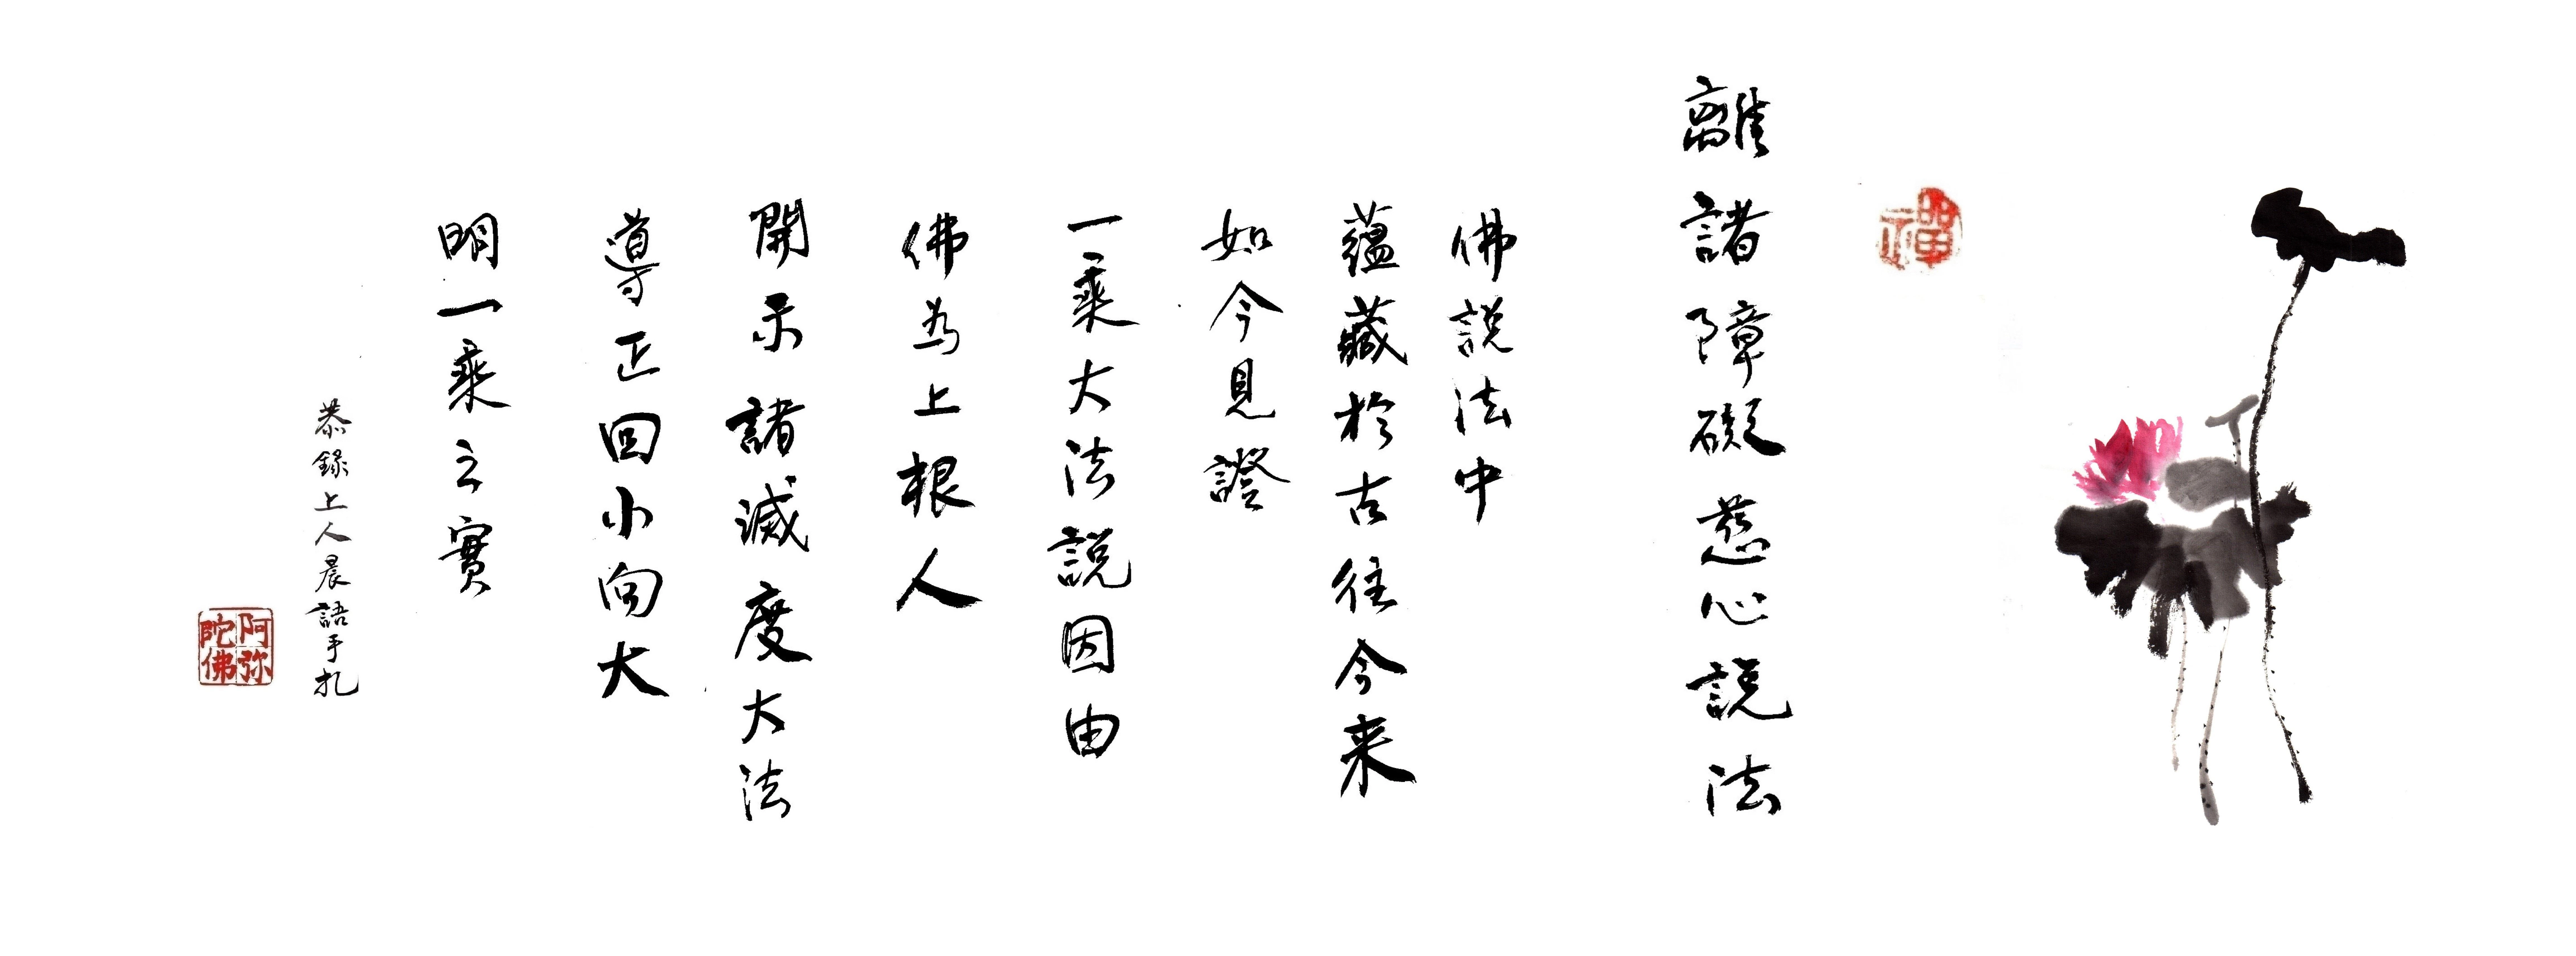 禪
離諸障礙慈心說法
佛說法中
蘊藏於古往今来
如今見證
一乘大法說因由
佛為上根人
開示諸滅度大法
導正回小向大
明一乘之實
恭錄上人晨語手札
阿弥陀佛